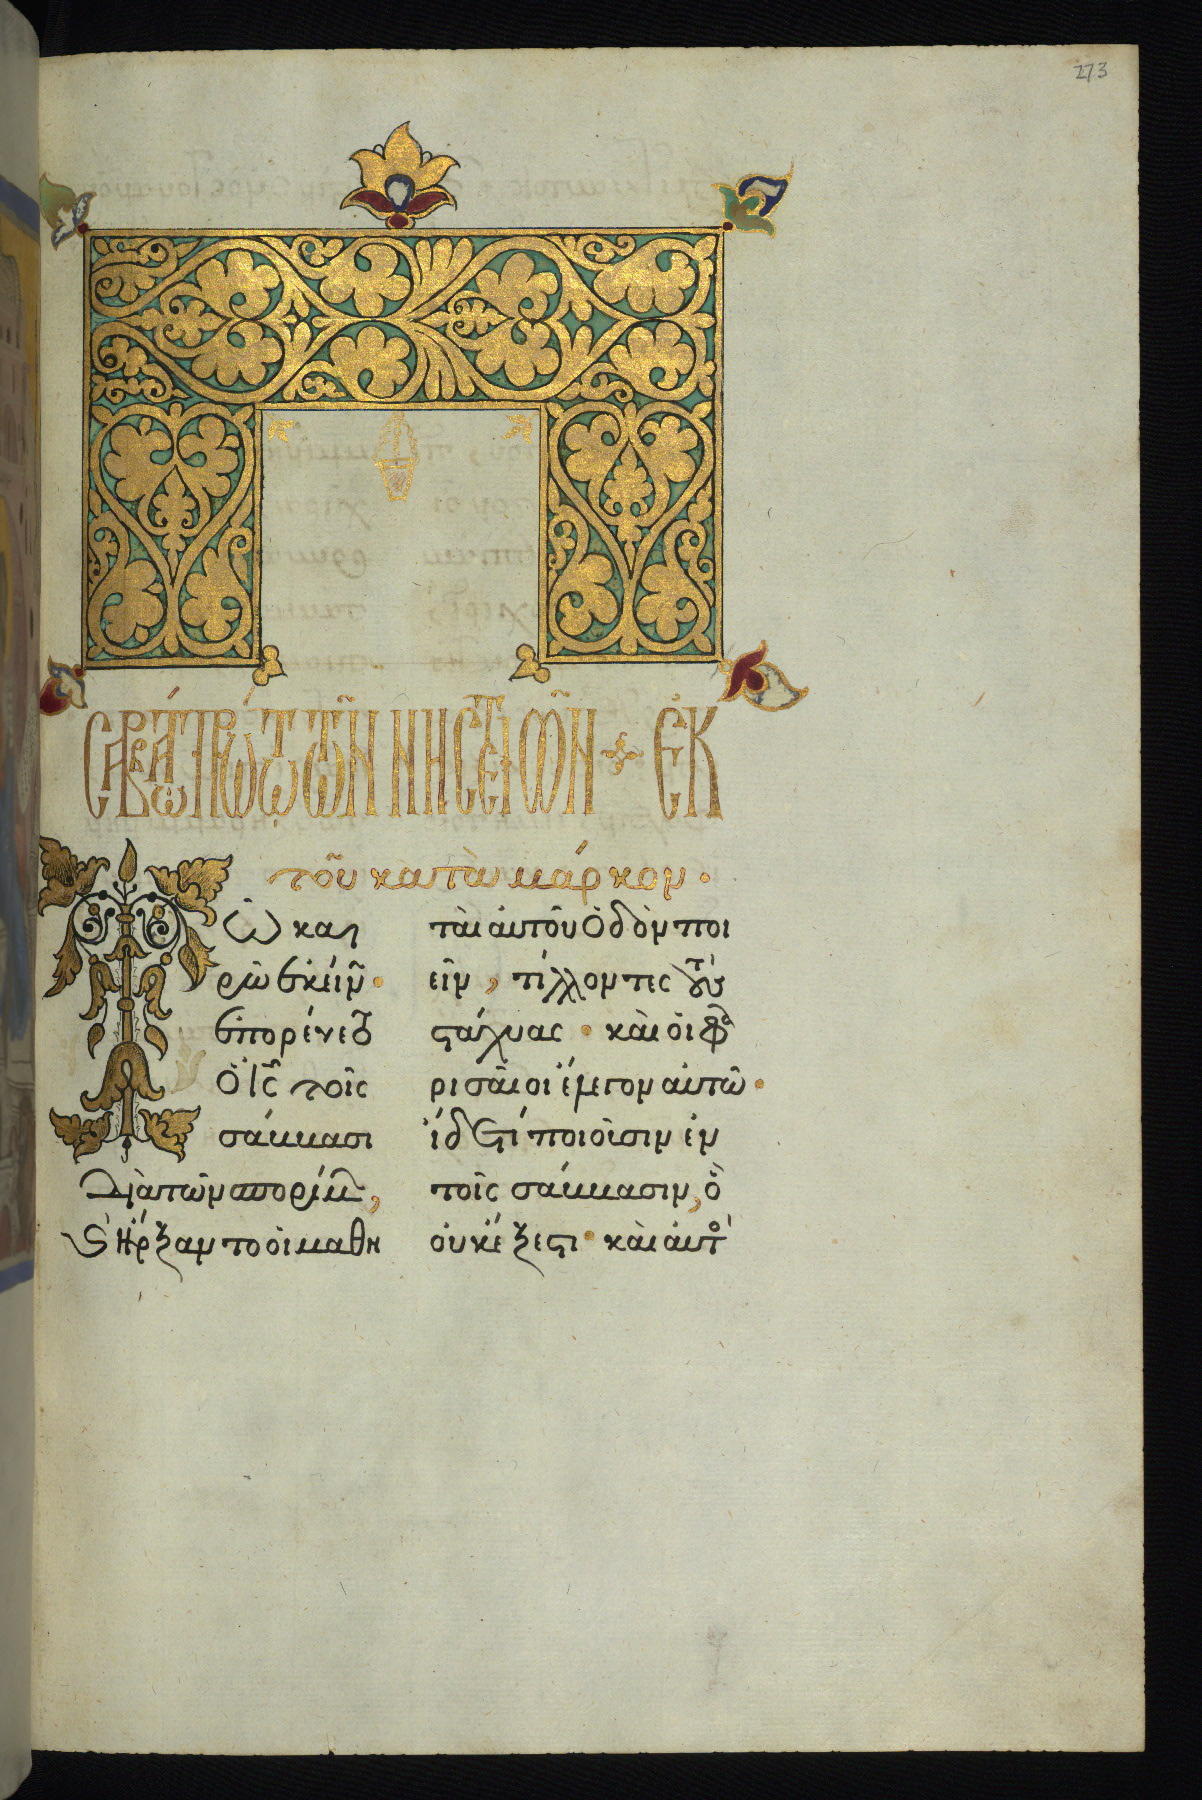 273
Σαββάτῳ πρώτῳ τῶν νηστειῶν ἐκ
τοῦ κατὰ μάρκον·
Τῷ και
ρῷ ἐκείν·
ἐπορεύετο
ὁ ΙΣ τοῖς
σάββασι
διὰ τῶν σπορίμ,
ϗ ἤρξαντο οἱ μαθη
ταὶ αὐτοῦ ὁδὸν ποι
εῖν, τίλλοντες τοὺ
στάχυας· καὶ οἱ φα
ρισαῖοι ἔλεγον αὐτῶ·
ἴδε τί ποιοῦσιν ἐν
τοῖς σάββασιν, ὃ
οὐκ ἔξεστι· καὶ αὐτὸ